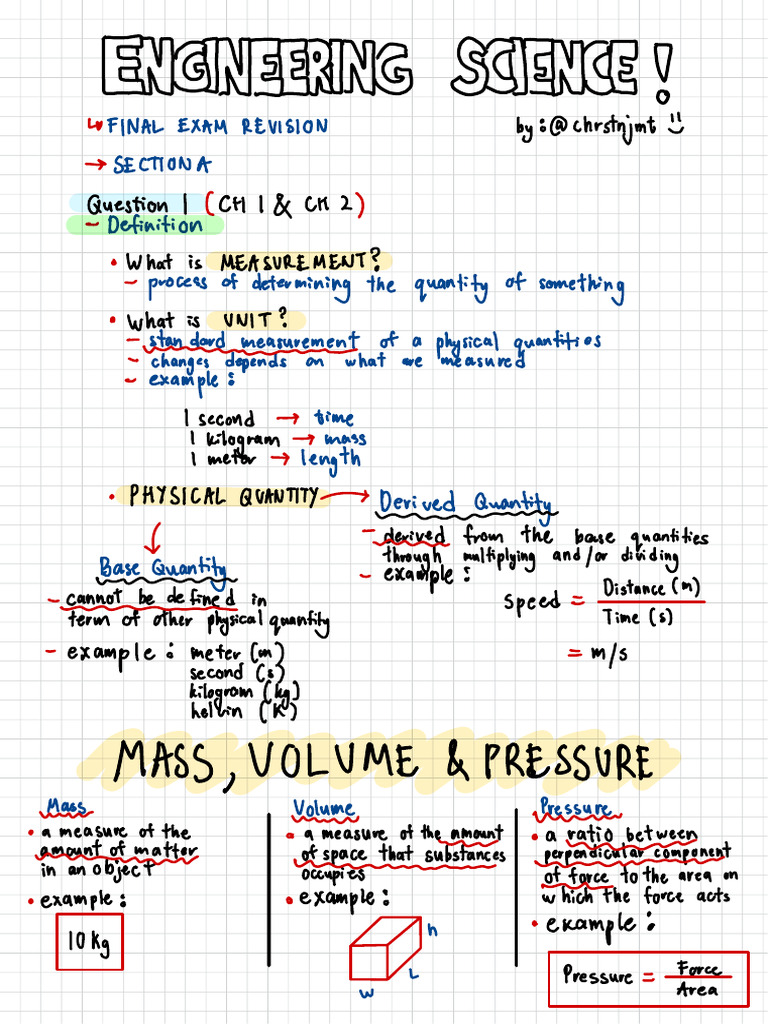 ENGINEERING SCIENCE!
↳ FINAL EXAM REVISION
by: @chrstnjmt
→ SECTION A
Question 1 (CH 1 & CH 2)
- Definition
• What is MEASUREMENT?
- process of determining the quantity of something
• What is UNIT?
- standard measurement of a physical quantities
- changes depends on what are measured
- example:
1 second → time
1 kilogram → mass
1 meter → length
• PHYSICAL QUANTITY →
Derived Quantity
- derived from the base quantities
through multiplying and/or dividing
- example:
speed = Distance (m)
Time (s)
= m/s
Base Quantity
- cannot be defined in
term of other physical quantity
- example: meter (m)
second (s)
kilogram (kg)
helvin (K)
MASS, VOLUME & PRESSURE
Mass
• a measure of the
amount of matter
in an object
• example:
10 kg
Volume
• a measure of the amount
of space that substances
occupies
• example:
h
L
W
Pressure
• a ratio between
perpendicular component
of force to the area on
which the force acts
• example:
Pressure = Force
Area